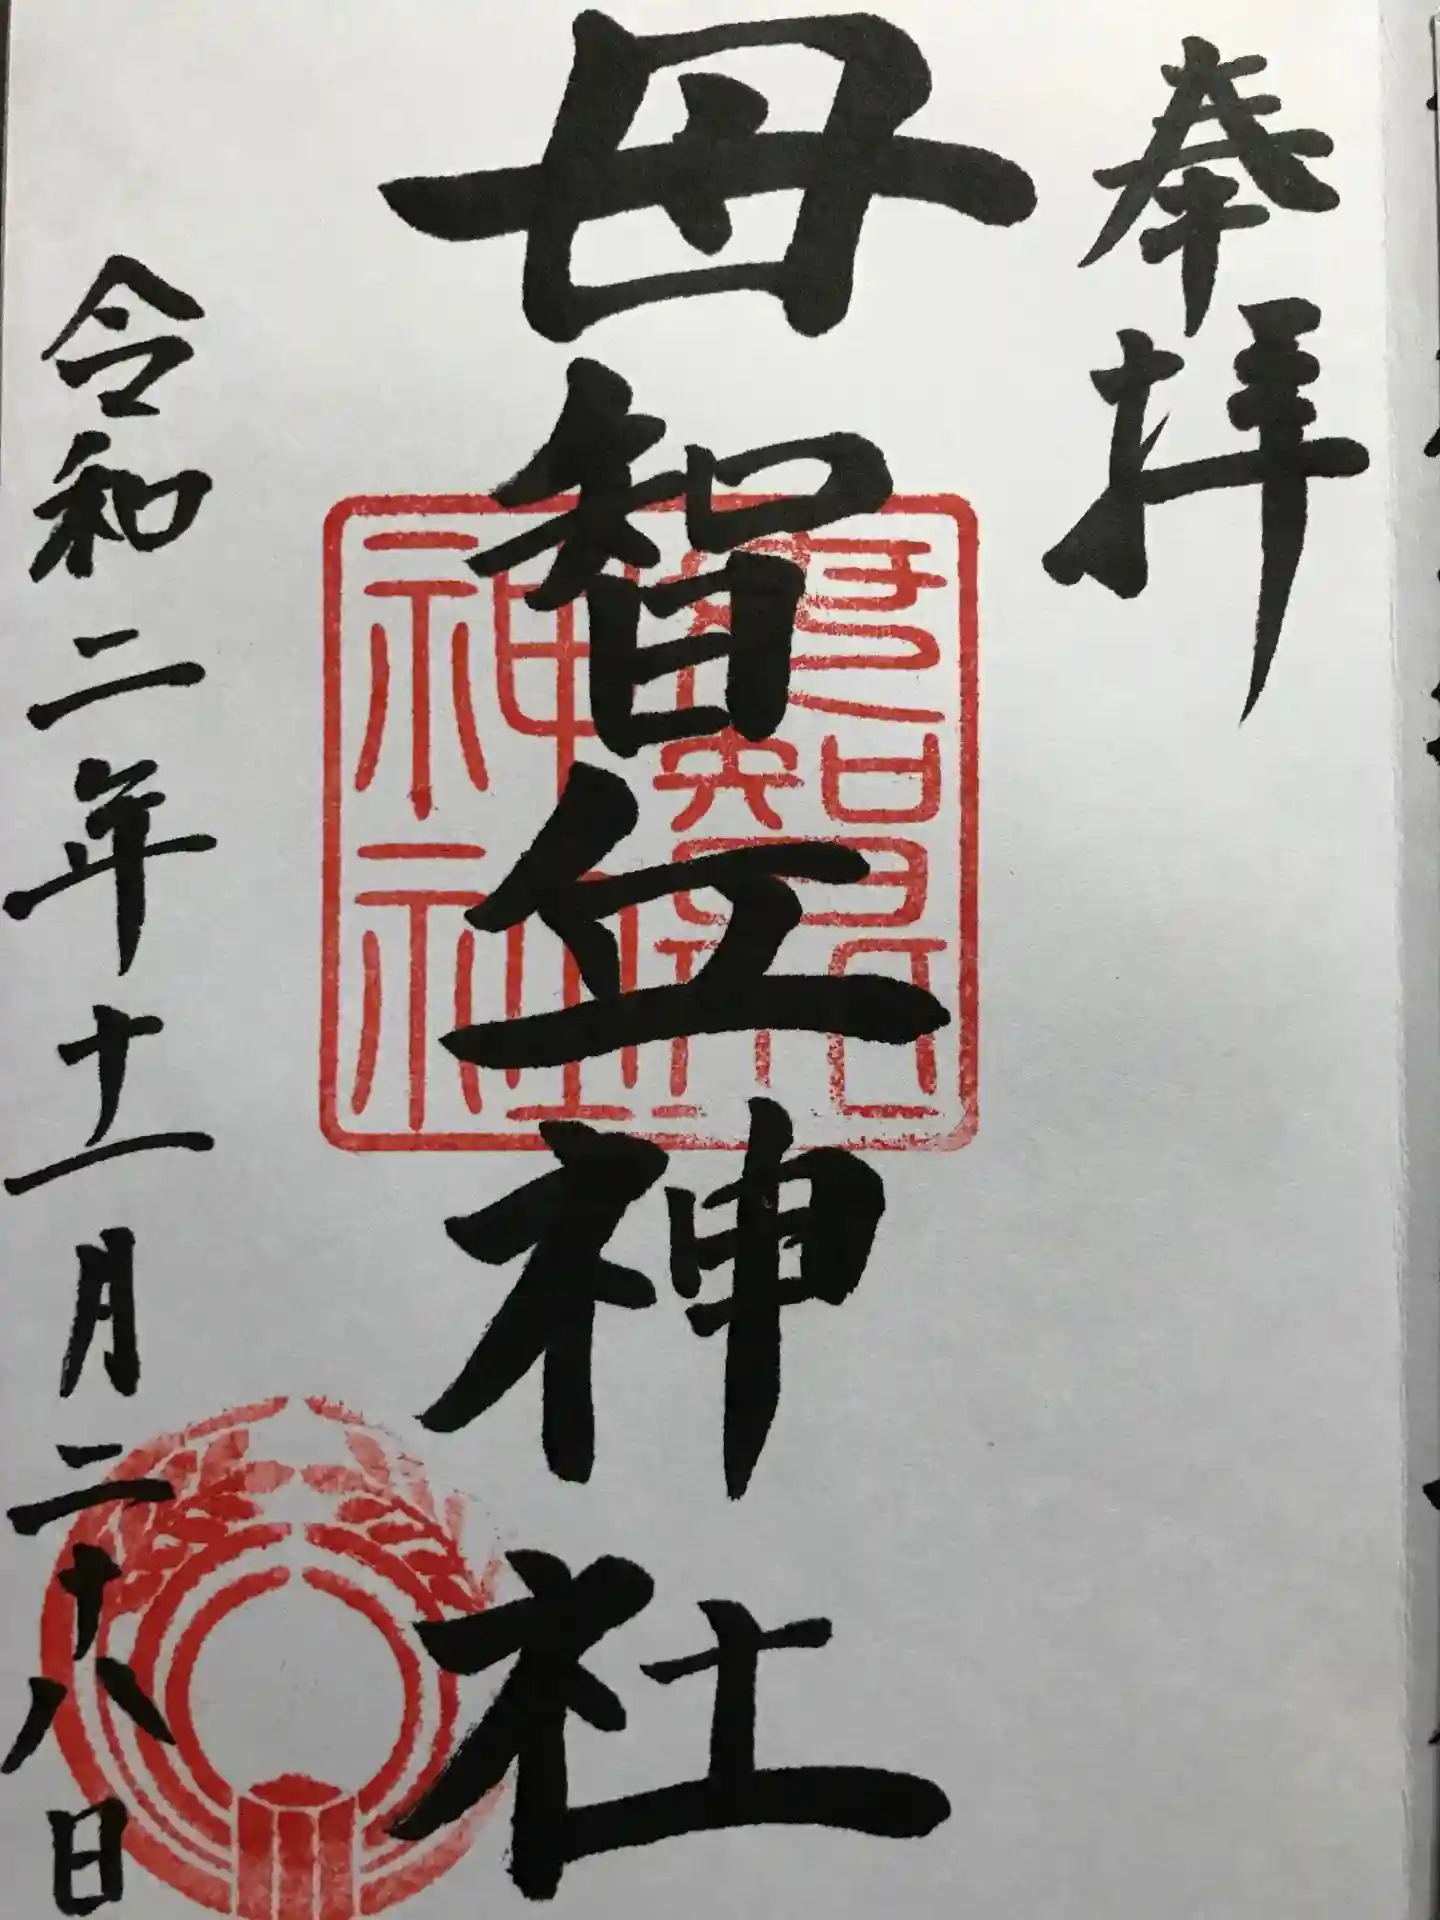 奉拝
母智丘神社
令和二年十一月二十八日
神社